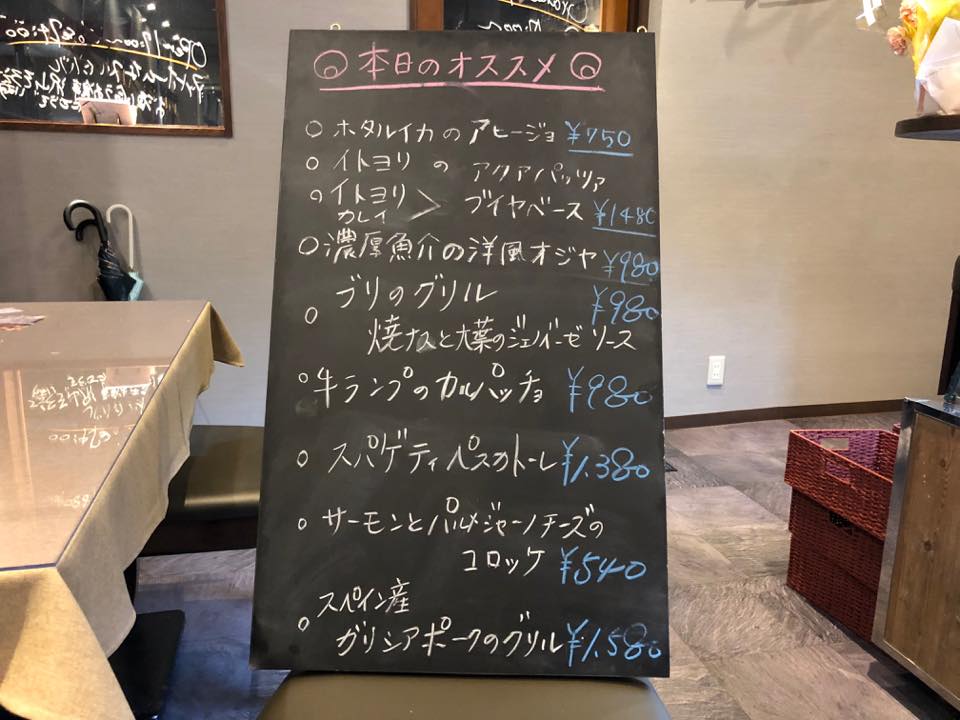 本日のオススメ
○ ホタルイカのアヒージョ ¥750
○ イトヨリ の アクアパッツァ
○ イトヨリ カレイ > ブイヤベース ¥1480
○ 濃厚魚介の洋風オジヤ ¥980
○ ブリのグリル ¥980
焼ナスと大葉のジェノベーゼソース
○ 牛ランプのカルパッチョ ¥980
○ スパゲティペスカトーレ ¥1.380
○ サーモンとパルメジャーノチーズの
コロッケ ¥540
○ スペイン産
ガリシアポークのグリル ¥1.580